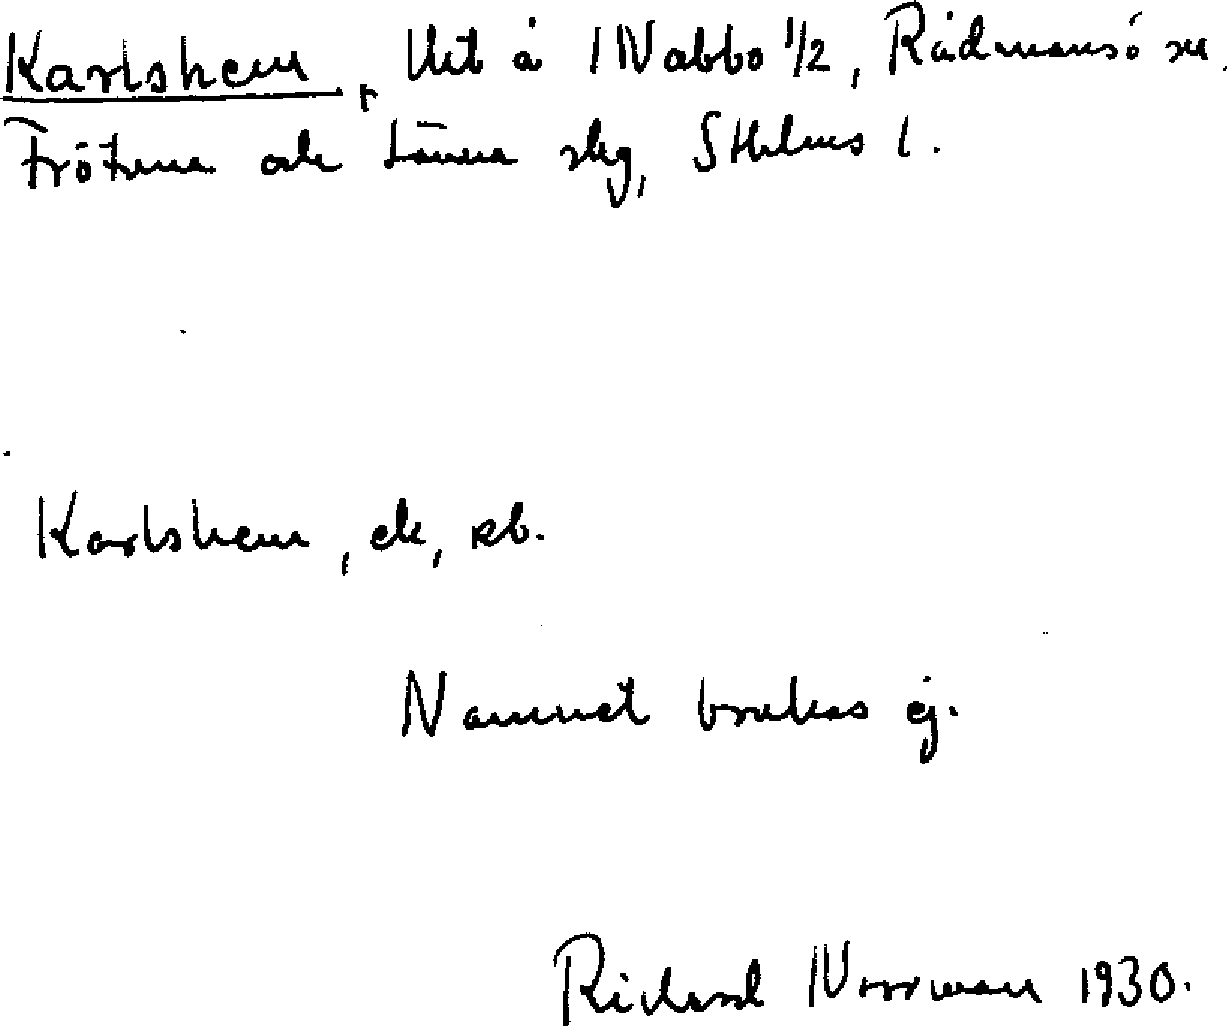 Karlshem, Utt å Nabbo 1/2, Rådmansö sn.
Frötuna och Länna skg, Sthlms l.
Karlshem, ek, kb.
Namnet brukas ej.
Richard Norrman 1930.